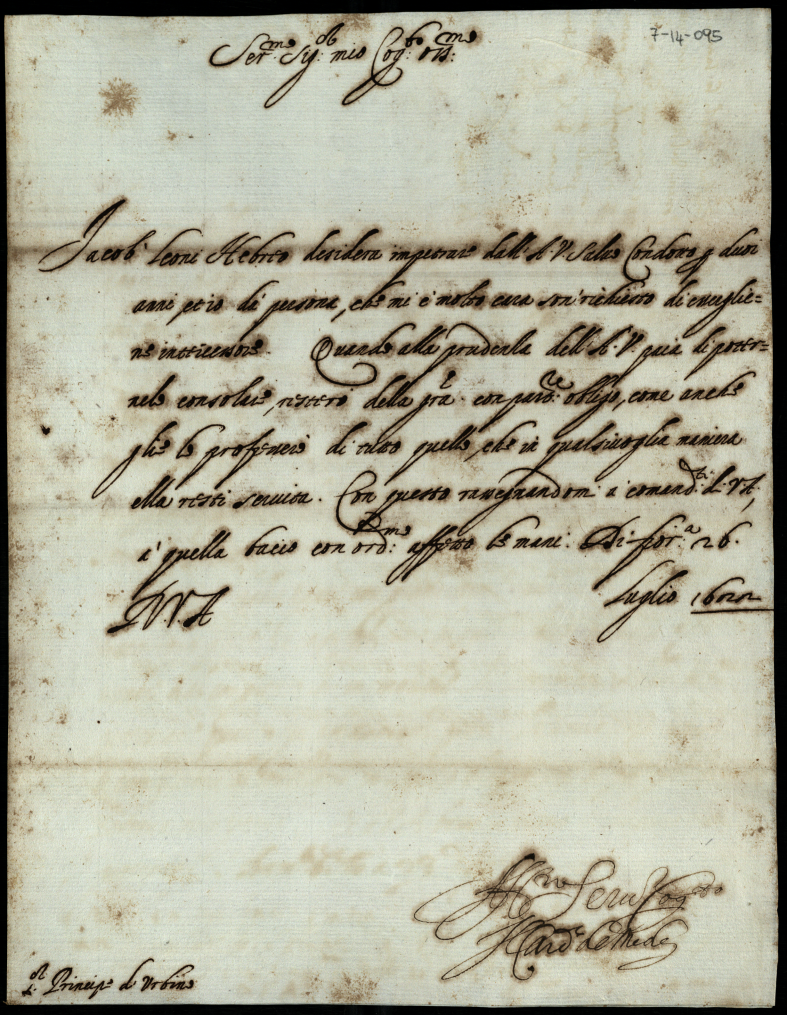 7-14-095
Ser.mo Sig.or mio Cog.to oss.mo
Jacob Leoni Hebreo desidera impetrare dall'A.V. Salvo Condotto p duoi
anni, et io da persona, che mi è molto cara son richiesto di essergliene=
ne intercessore. Quando alla prudenza dell'A.V. paia di poter=
nelo consolare, resterò della gra. con par.re obligo, come anche
gliele professerò di tutto quello, che in qualsivoglia maniera
ella resti servita. Con questo rassegnandomi a comand.ti d. V.A,
à quella bacio con ord.mo affetto le mani. Di Fior.a 26.
Luglio 1622
D.V.A
Aff.mo Seru Cog.to
Il Car.l de Medici
S.or Principe d'Urbino